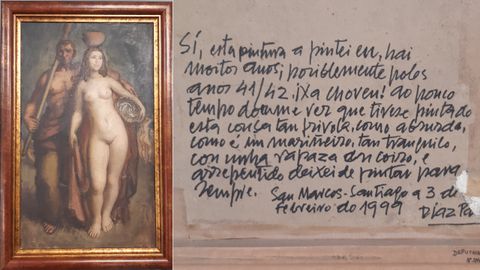 Sí, esta pintura a pintei eu, hai
moitos anos; posiblemente polos
anos 41/42. ¡Xa choveu! ao pouco
tempo doeume ver que tivese pintado
esta cousa tan frívola, como absurda,
como é un mariñeiro, tan tranquilo,
con unha rapaza en coiro, e
arrepentido deixei de pintar para
sempre. San Marcos-Santiago a 3 de
febreiro do 1999 Díaz Pa
DEPUTACI